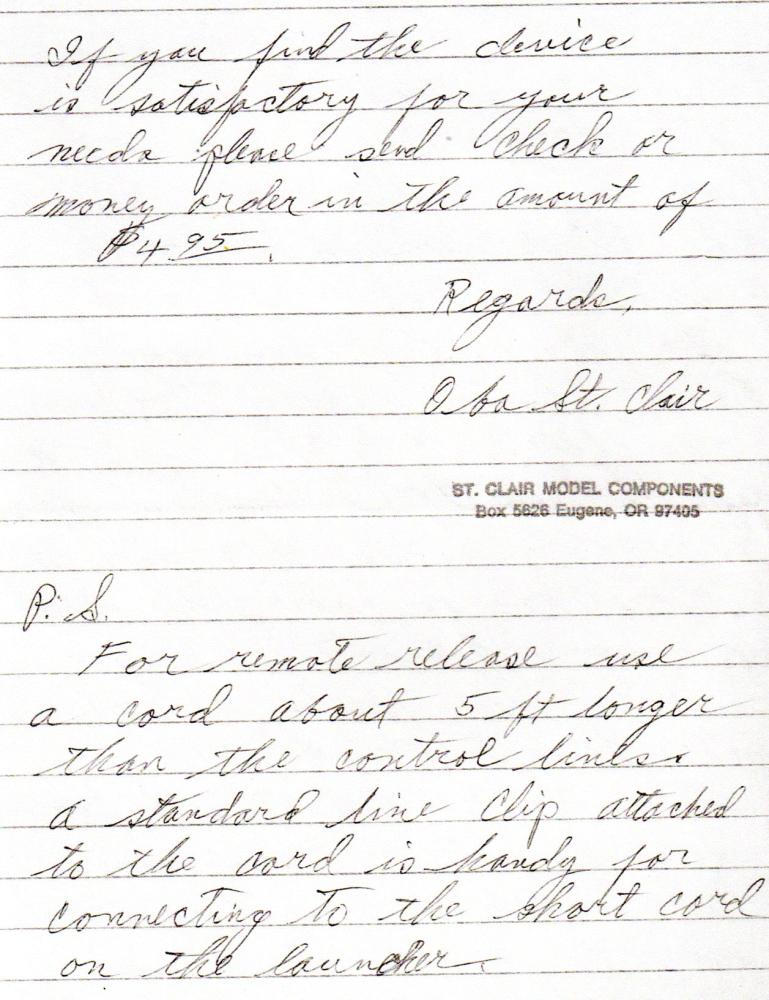 If you find the device
is satisfactory for your
needs please send check or
money order in the amount of
$4.95.
Regards,
Oba St. Clair
ST. CLAIR MODEL COMPONENTS
Box 5626 Eugene, OR 97405
P.S.
For remote release use
a cord about 5 ft longer
than the control lines.
a standard line clip attached
to the cord is handy for
connecting to the short cord
on the launcher.